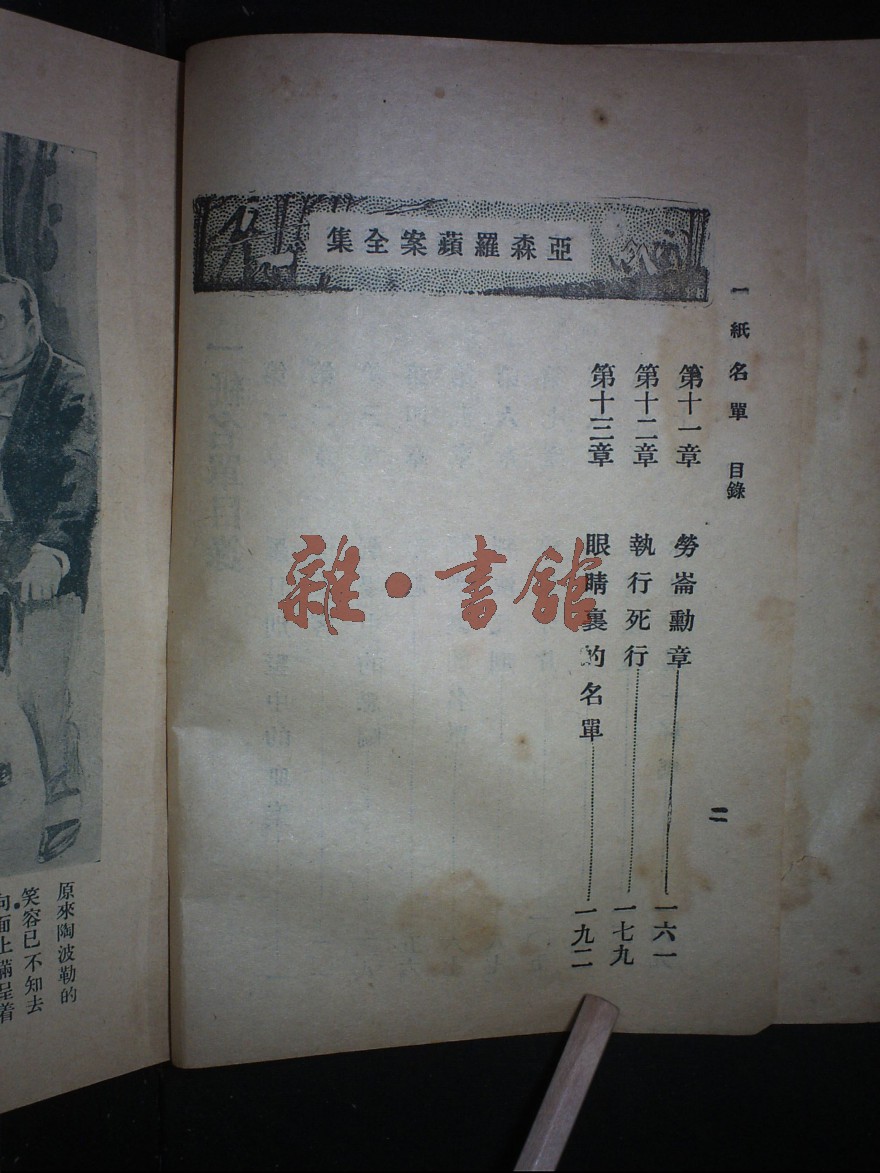 亞森羅蘋案全集
一紙名單 目錄
第十一章 勞崙勳章 一六一
第十二章 執行死行 一七九
第十三章 眼睛裏的名單 一九二
二
雜·書館
原來陶波勒的
笑容已不知去
向面上滿呈着